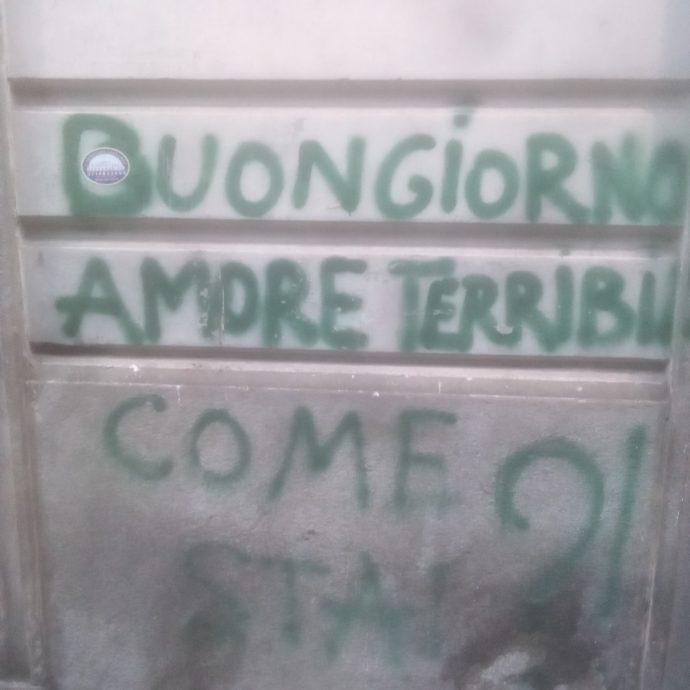 BUONGIORNO
AMORE TERRIBIL
COME
STAI ?!